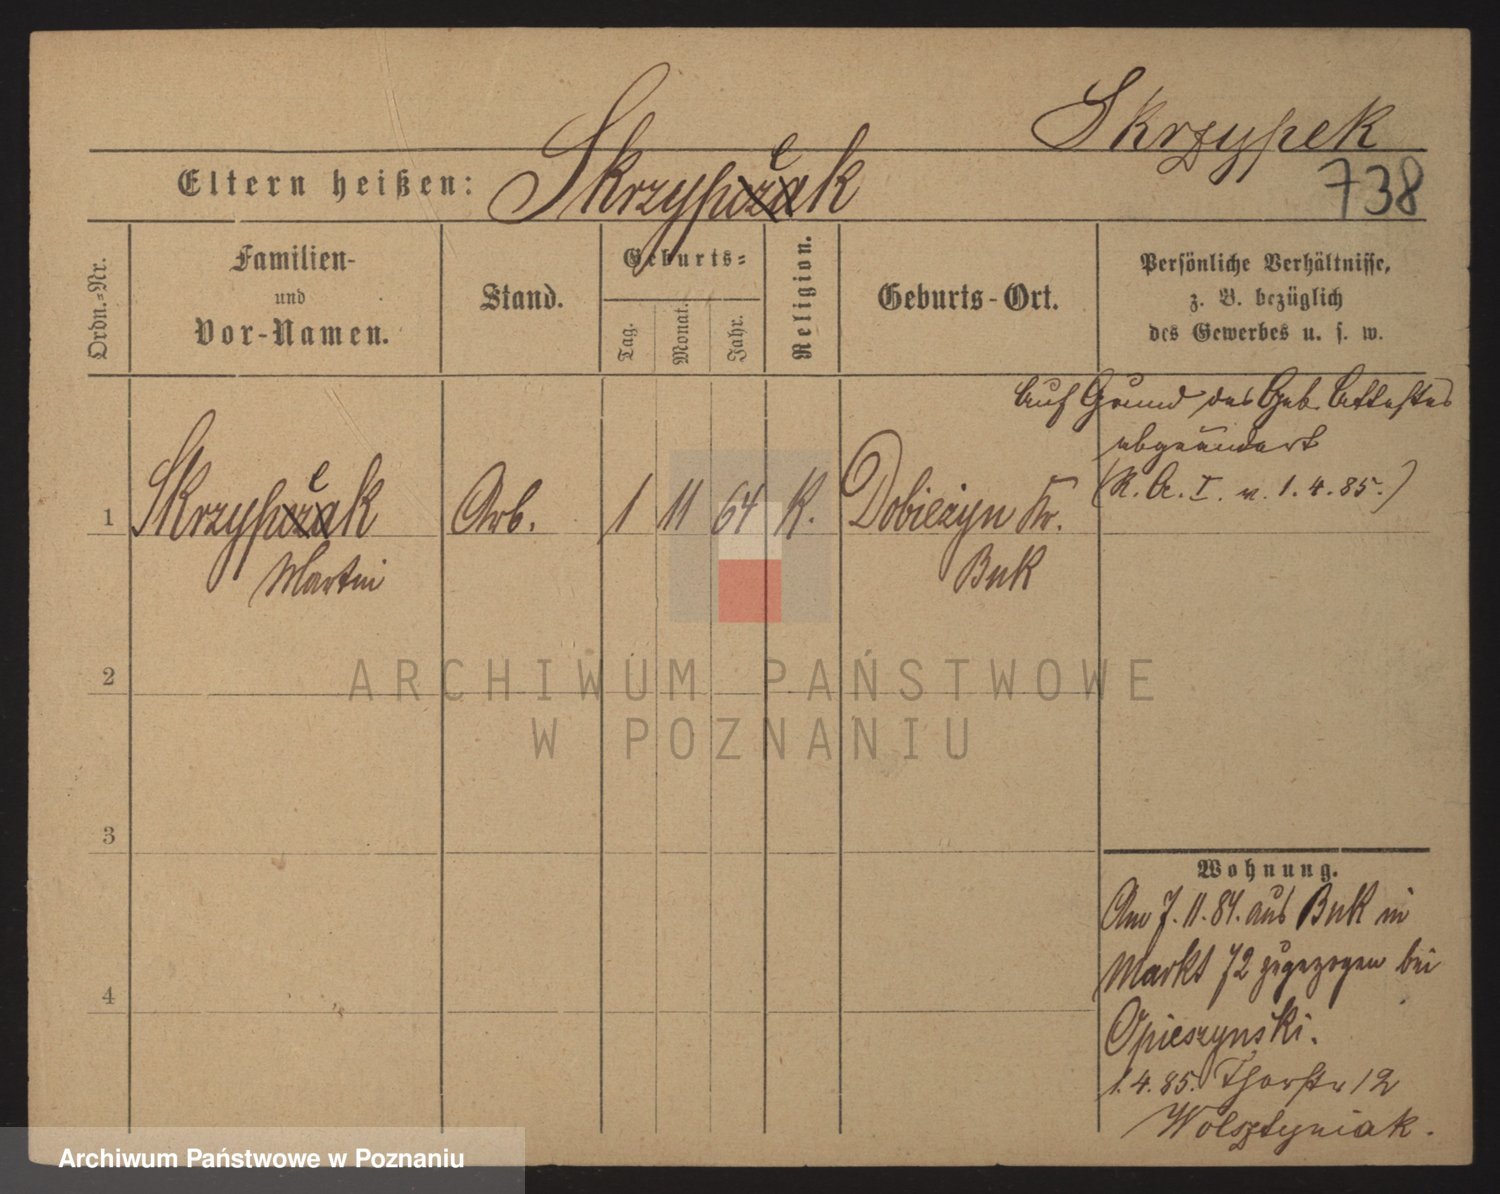 Skrzypek
Eltern heißen: Skrzypczak e
738
Ordn.-Nr.
Familien-
und
Vor-Namen.
Stand.
Geburts-
Tag.
Monat.
Jahr.
Religion.
Geburts-Ort.
Persönliche Verhältnisse,
z. B. bezüglich
des Gewerbes u. s. w.
Auf Grund des Geb. Attestes
abgeändert
(R. A. I. v. 1.4.85.)
1 Skrzypczak e Arb. 1 11 64 K. Dobieżyn Kr.
Martin Buk
2
3
4
Wohnung.
Am 7.11.84. aus Buk in
Markt 72 zugezogen bei
Opieszynski.
1.4.85. Thorstr 12
Wolsztyniak.
ARCHIWUM PAŃSTWOWE
W POZNANIU
Archiwum Państwowe w Poznaniu